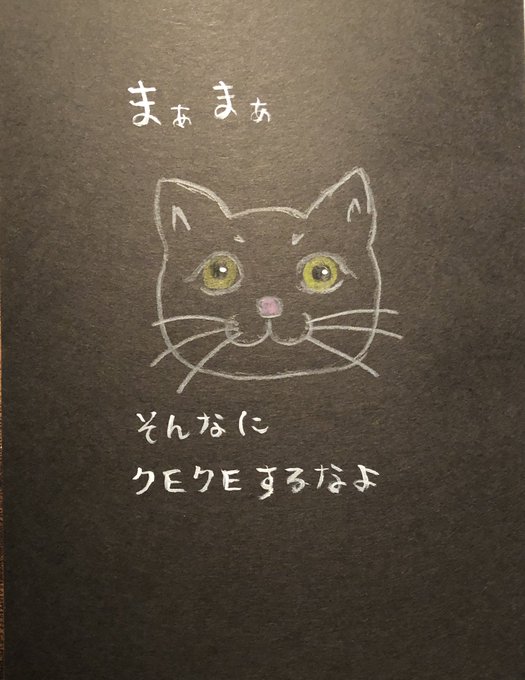 まぁまぁ
そんなに
クEクEするなよ